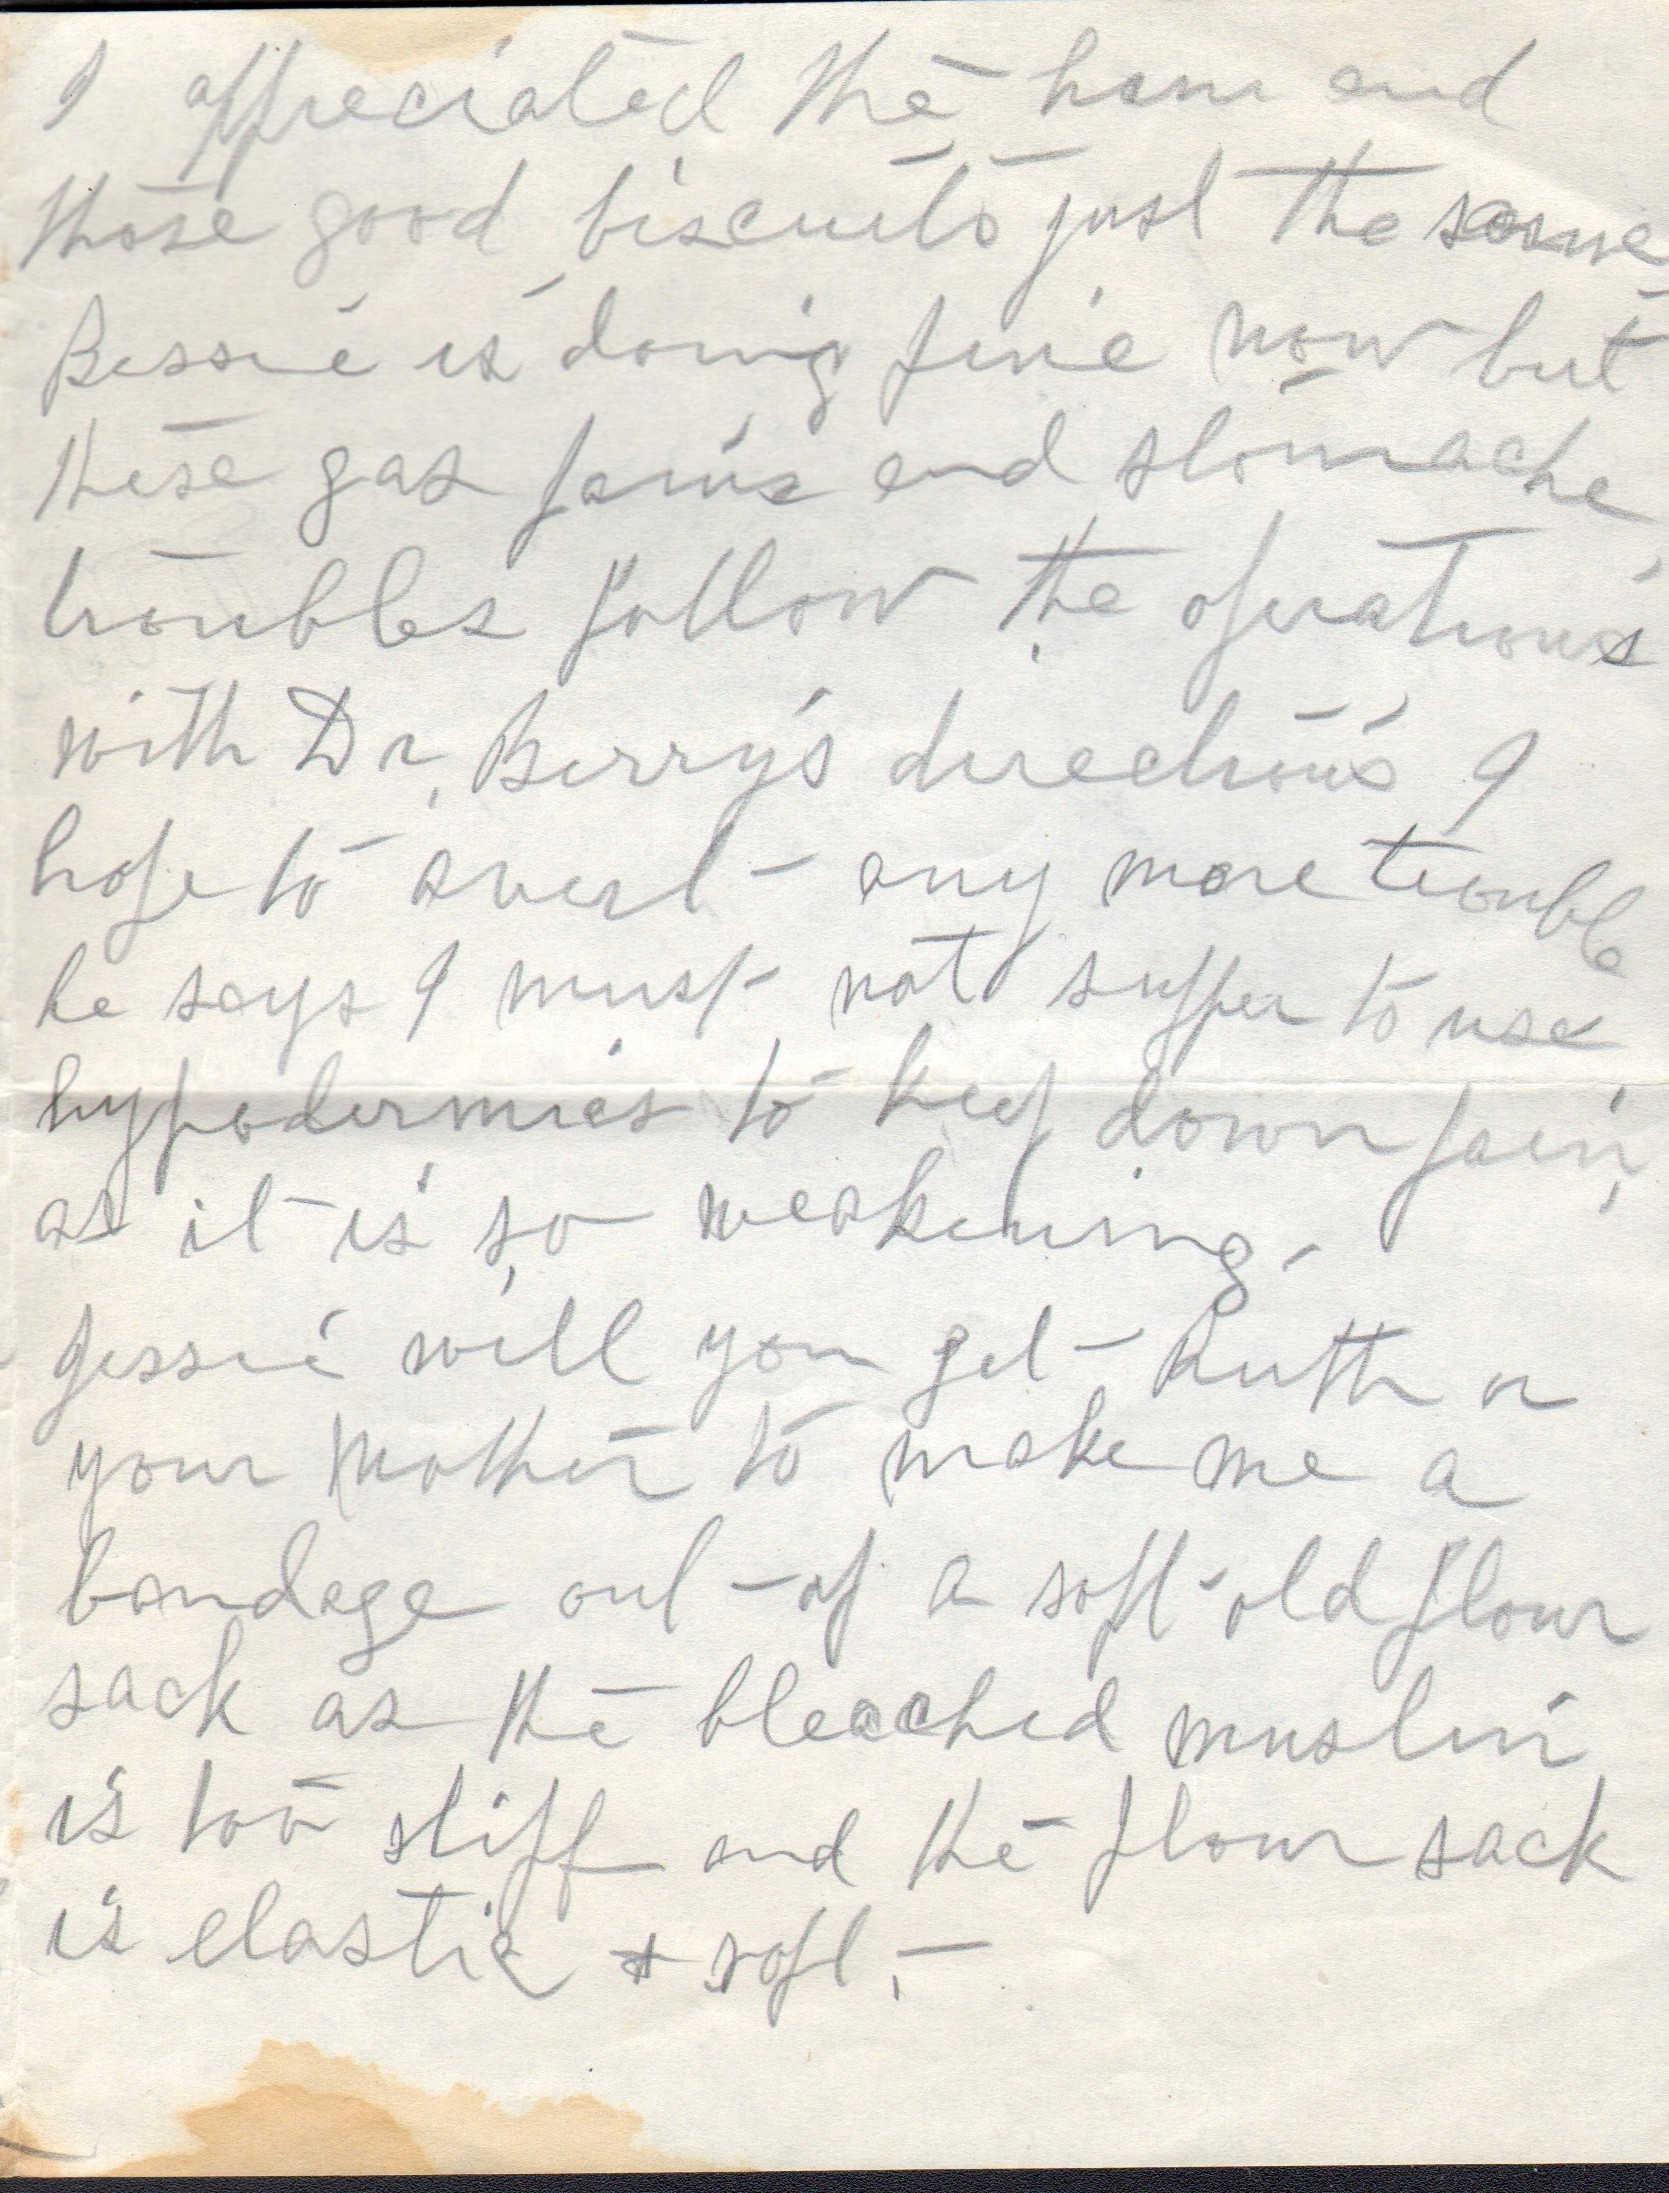 I appreciated the ham and
those good biscuits just the same
Bessie is doing fine now but
these gas pains and stomache
troubles follow the operations
with Dr, Berry's directions I
hope to avert any more trouble
he says I must not suffer to use
hypodermics to keep down pain,
as it is so weakening.
Jessie will you get Ruth or
your Mother to make me a
bandage out of a soft old flour
sack as the bleached muslin
is too stiff and the flour sack
is elastic + soft. -